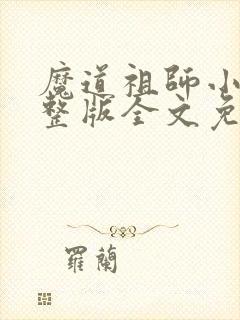 魔道祖師小
整版全文免
羅蘭